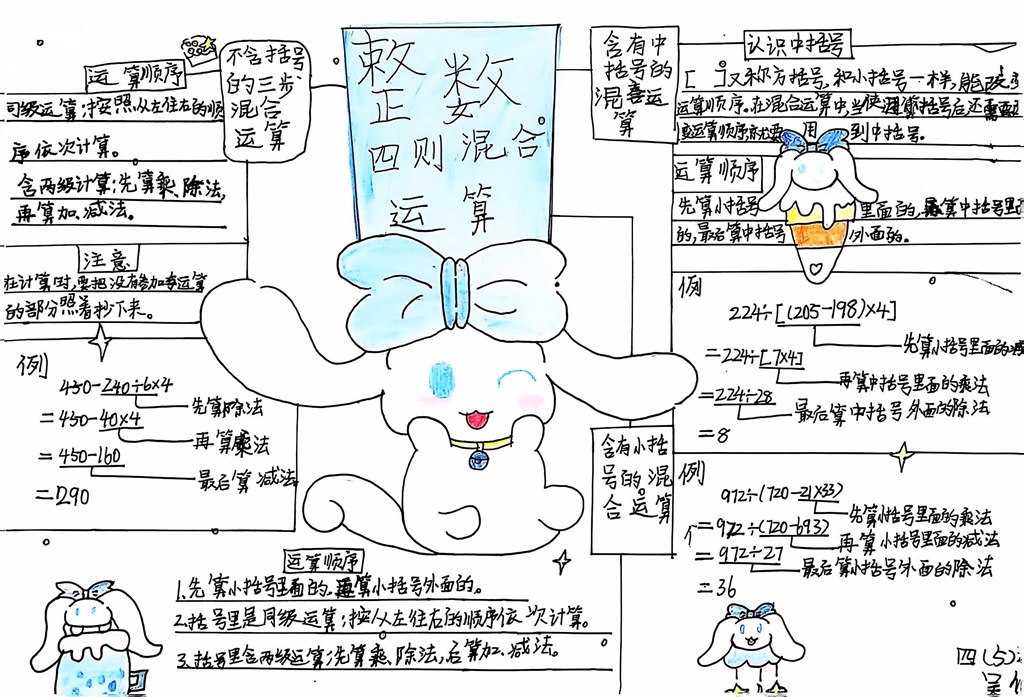 整数
四则混合
运算
不含括号
的三步
混合
运算
运算顺序
同级运算：按照从左往右的顺
序依次计算。
含两级计算：先算乘、除法，
再算加、减法。
注意
在计算时，要把没有参加运算
的部分照着抄下来。
例
450-240÷6×4
=450-40×4
=450-160
=290
先算除法
再算乘法
最后算减法
含有中
括号的
混合运
算
认识中括号
[ ]又称方括号，和小括号一样，能改
运算顺序。在混合运算中，当使
到中括号。
运算顺序
先算小括号里面的，再算中括号里
的，最后算中括号外面的。
例
224÷[(205-198)×4]
=224÷[7×4]
=224÷28
=8
先算小括号里面的减
再算中括号里面的乘法
最后算中括号外面的除法
含有小括
号的混
合运算
例
972÷(720-21×33)
=972÷(720-693)
=972÷27
=36
先算小括号里面的乘法
再算小括号里面的减法
最后算小括号外面的除法
运算顺序
1.先算小括号里面的，再算小括号外面的。
2.括号里是同级运算：按从左往右的顺序依次计算。
3.括号里含两级运算：先算乘、除法，后算加、减法。
四(5)